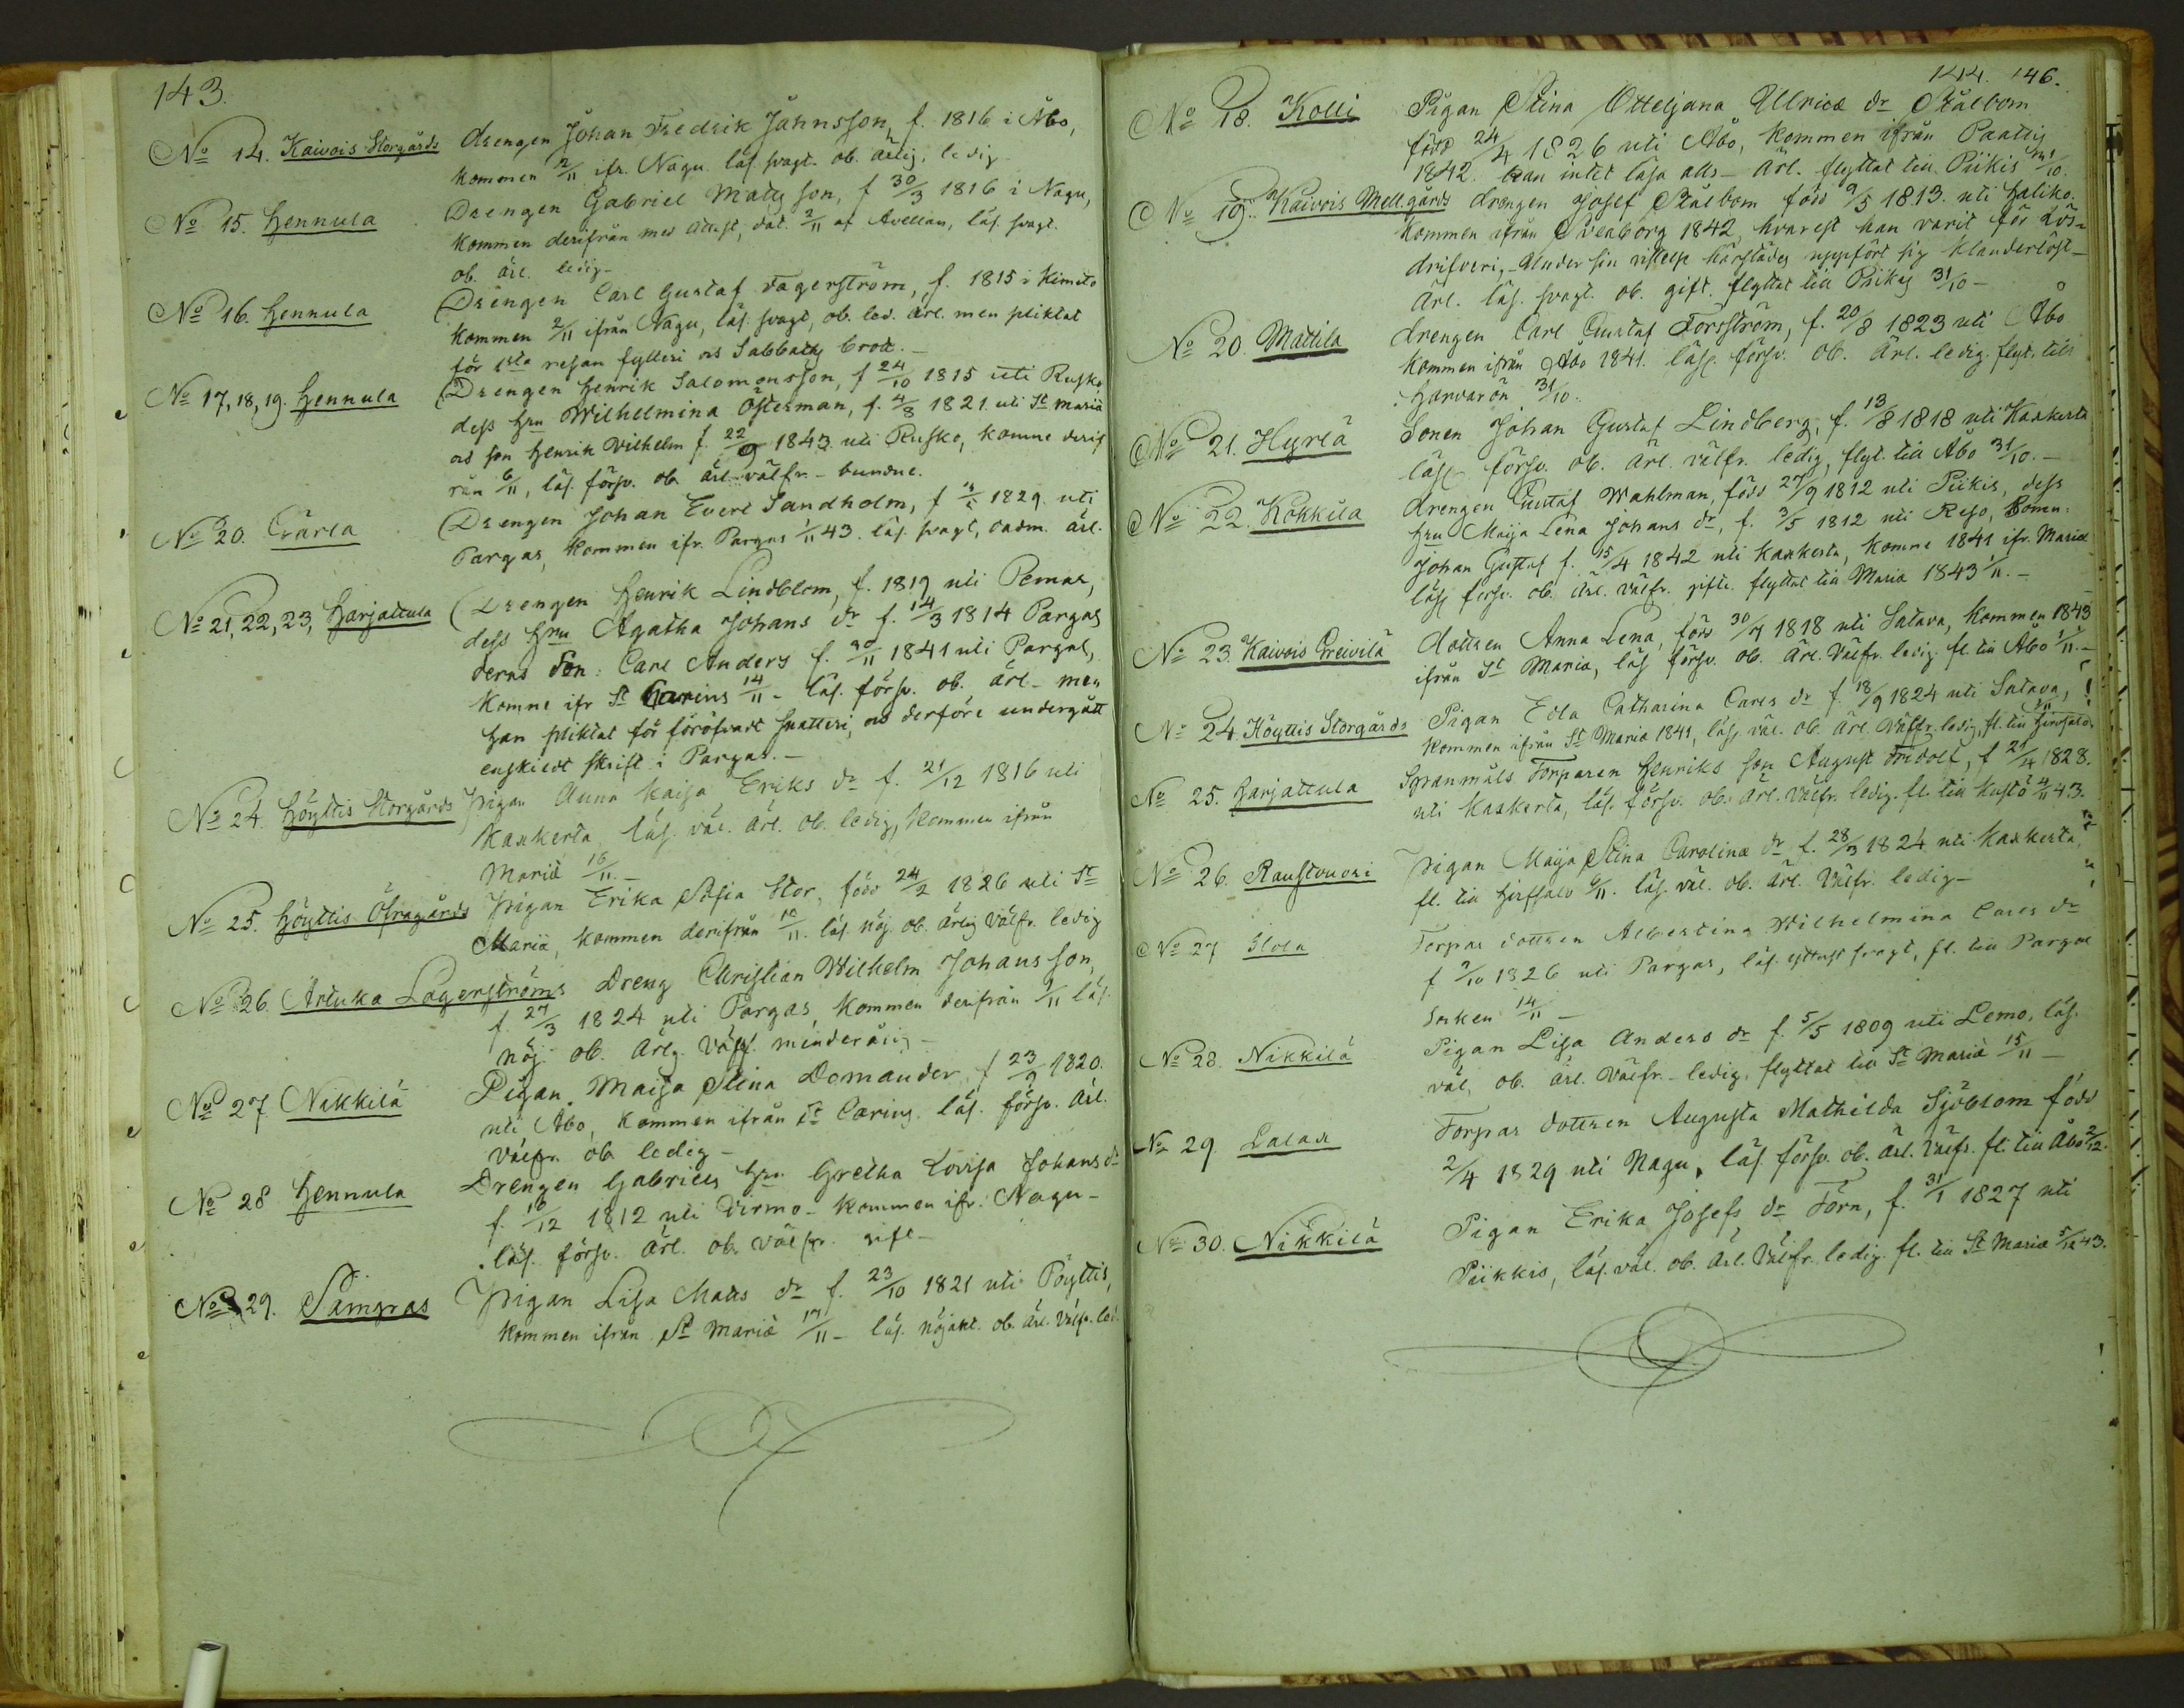 143.
No 14. Kaivois Storgårds Drengen Johan Fredrik Jahnsson, f. 1816 i Åbo,
kommen 2/11 ifr. Nagu. läs svagt. ob. ärlig, ledig
No 15. Hennula Drengen Gabriel Matts son, f 30/3 1816 i Nagu,
kommen derifrån med attest, dat. 2/11 af Avellan, läs. svagt.
ob. ärl. ledig-
No 16. Hennula Drengen Carl Gustaf Fagerström, f. 1815 i Kimito
kommen 2/11 ifrån Nagu, läs. svagt, ob. led. ärl. men pliktat
för 1sta resan fylleri os Sabbaths brott.-
No 17, 18, 19. Hennula Drengen Henrik Salomonsson, f 24/10 1815 uti Rusko
dess hru Wilhelmina Österman, f. 4/8 1821 uti St Mariä
os son Henrik Wilhelm f. 22/9 1843 uti Rusko, komne derif
rån 6/11, läs. försv. ob. ärl. välfr.- bundne.
No 20. Drengen Johan Evert Sandholm, f 1829. uti
Pargas, kommen ifr. Pargas 1/11 43. läs. svagt, oadm. ärl.
No 21, 22, 23, Harjattula Drengen Henrik Lindblom, f. 1819 uti Pemar,
dess hru Agatha Johans dr f. 14/3 1814 Pargas
deras Son: Carl Anders f. 30/11 1841 uti Pargas,
komne ifr St Carins 14/11 - läs. försv. ob. ärl - men
han pliktat för föröfvadt snatteri, os derföre undergått
enskildt skrift i Pargas.-
No 24. Höyttis Storgårds Pigan Anna Kaisa Eriks dr f. 21/12 1816 uti
Kakskerta läs. väl. ärl. ob. ledig, kommen ifrån
Mariä 16/11.-
No 25. Höyttis Öfragårds Pigan Erika Sofia Stor, född 24/2 1826 uti St
Mariä, kommen derifrån 11. läs. nöj. ob. ärlig Välfr. ledig
No 26. Artuka Lagerströms Dreng Christian Wilhelm Johansson,
f. 27/3 1824 uti Pargas, kommen derifrån 9/11 läs.
nöj. ob. ärlg. välfr. minderårig-
No 27 Nikkilä Pigan Maija Stina Domander f 23/9 1820.
uti Åbo, kommen ifrån St Carins. läs. försv. ärl.
välfr. ob. ledig-
No 28 Hennula Drengen Gabriels hru Gretha Lovisa Johans dr
f. 16/12 1812 uti Virmo- kommen ifr. Nagu-
läs. försv. ärl. ob. välfr. gift-
No 29. Samppas Pigan Lisa Matts dr f. 23/10 1821 uti Pöyttis,
kommen ifrån St Mariä 17/11 - läs. nöjakt. ob. ärl. Välfr. led.
144. 146.
No 18. Kolli Pigan Stina Otteljana Ullricæ dr Stålbom
född 24/4 1826 uti Åbo, kommen ifrån Paattis
1842. kan intet läsa alls - ärl. flyttat till Piikis 31/10.
No 19. Kaivois Mellgårds Drengen Josef Stålbom född 9/5 1813. uti Haliko.
kommen ifrån Sveaborg 1842, hvarest han varit för Lös-
drifveri,- Under sin vistelse härstädes uppfört sig klanderlöst-
ärl. läs. svagt. ob. gift. flyttat till Piikis 31/10-
No 20. Mattila Drengen Carl Gustaf Forsström, f. 20/8 1823 uti Åbo
kommen ifrån Åbo 1841. läs. försv. ob. ärl. ledig. flyt. till
Harvarön 31/10.
No 21. Hyrlä Sonen Johan Gustaf Lindberg, f. 13/8 1818 uti Kakskerta
läs försv. ob. ärl. välfr. ledig, flyt. till Åbo 31/10.-
No 22. Kokkila Drengen Gustaf Wahlman, född 27/9 1812 uti Piikis, dess
hru Maija Lena Johans dr, f. 3/5 1812 uti Reso, Sonen:
Johan Gustaf f. 15/4 1842 uti Kakskerta, komne 1841 ifr. Mariæ
läs försv. ob. ärl. välfr. gifte. flyttat till Maria 1843 1/11.-
No 23. Kaivois Preivilä dottren Anna Lena, född 30/7 1818 uti Satava, kommen 1843
ifrån St Maria, läs försv. ob. ärl. Välfr. ledig. fl. till Åbo 1/11.-
No 24. Höyttis Storgårds Pigan Eola Catharina Carls dr f. 18/9 1824 uti Satava,
kommen ifrån St Mariæ 1841, läs. väl. ob. ärl. Välfr. ledig, fl. till Hirfsalo.
No 25. Harjattula Spanmåls Torparen Henriks son August Fridolf, f 21/4 1828.
uti Kakskerta, läs. försv. ob. ärl. Välfr. ledig. fl. till Kustö 4/11 43.
No 26. Raustvuori Pigan Maija Stina Carolinæ dr f. 28/3 1824 uti Kakskerta,
fl. till Hirfsalo 6/11. läs. väl. ob. ärl. Välfr. ledig-
No 27 Ilola Torpar dottren Albertina Wilhelmina Carls dr
f 7/10 1826 uti Pargas, läs. yttrst svagt, fl. till Pargas
Socken 14/11-
No 28. Nikkilä Pigan Lisa Anders dr f. 5/5 1809 uti Lemo, läs.
väl. ob. ärl. Välfr.- ledig. flyttat till St Mariä 15/11-
No 29. Lalax Torpar dottren Augusta Mathilda Sjöblom född
2/4 1829 uti Nagu, läs. försv. ob. ärl. Välfr. fl. till Åbo 2/12.
No 30. Nikkilä Pigan Erika Josefs dr Törn, f. 31/1 1827 uti
Piikkis, läs. väl. ob. ärl. Välfr. ledig. fl. till St Mariä 5/12 43.